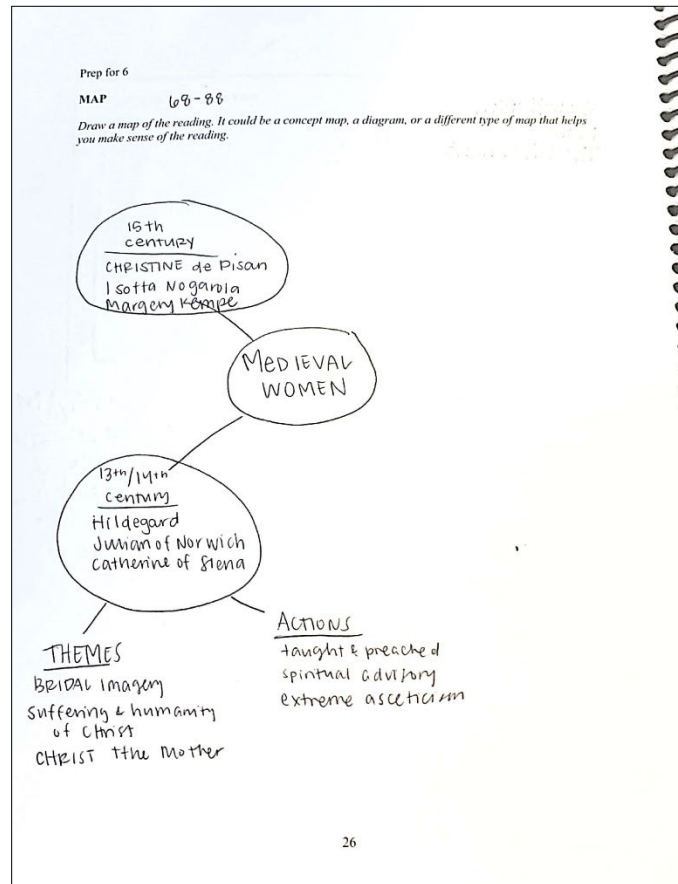 Prep for 6
MAP 68-88
Draw a map of the reading. It could be a concept map, a diagram, or a different type of map that helps
you make sense of the reading.
15th
century
CHRISTINE de Pisan
Isotta Nogarola
Margery Kempe
MEDIEVAL
WOMEN
13th/14th
century
Hildegard
Julian of Norwich
Catherine of Siena
THEMES
BRIDAL Imagery
Suffering & humanity
of Christ
CHRIST tthe Mother
ACTIONS
taught & preached
spiritual advisory
extreme asceticism
26